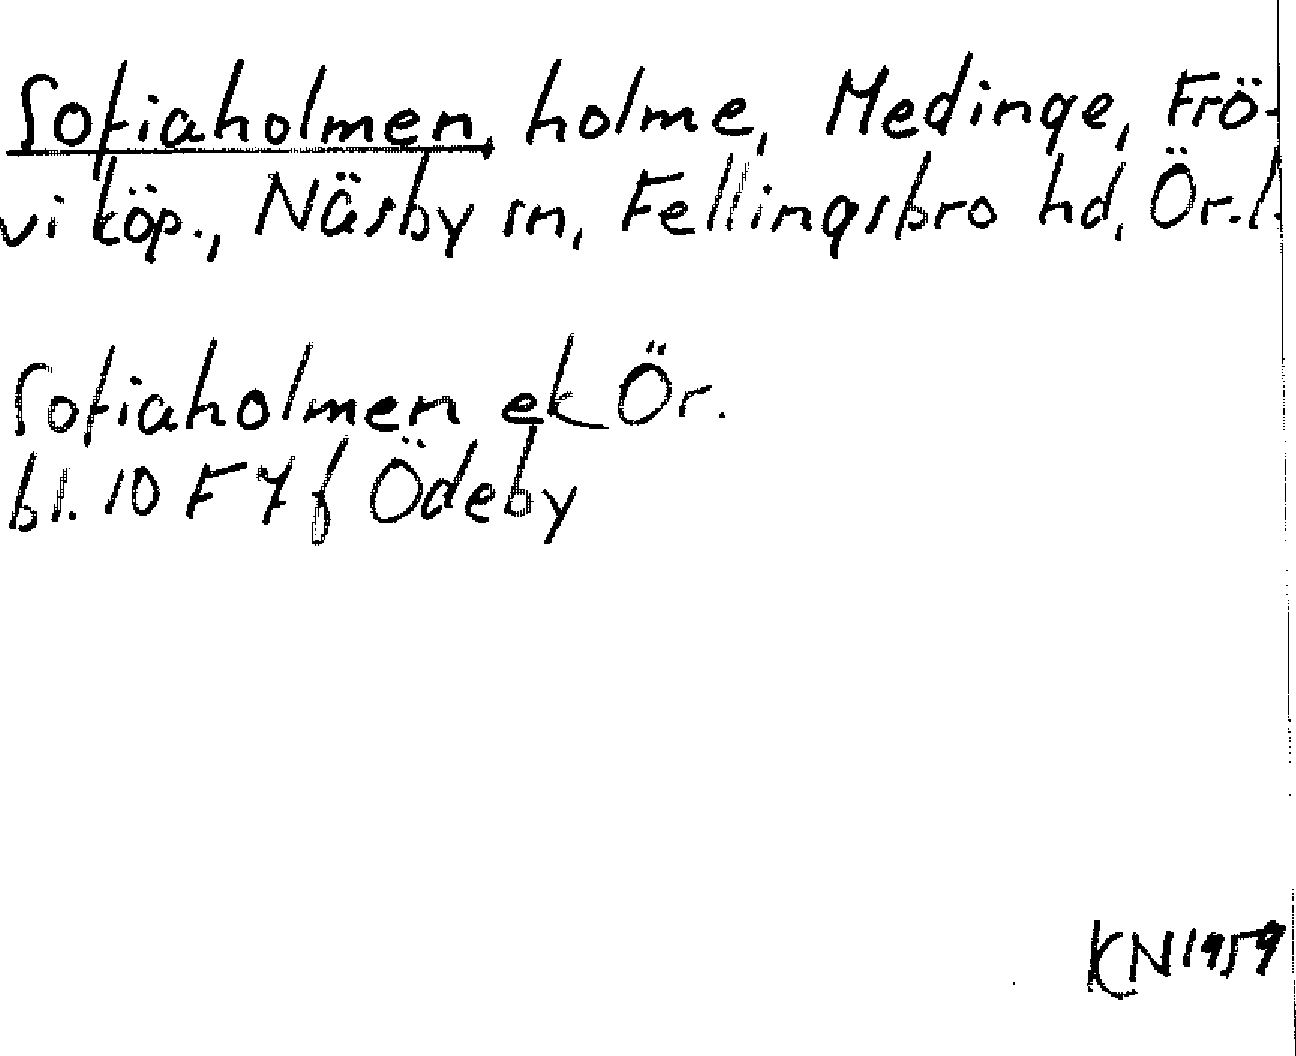 Sofiaholmen, holme, Medinge, Frö-
vi köp., Näsby sn, Fellingsbro hd, Ör.l.
Sofiaholmen ek Ör.
bl. 10 F 7 f Ödeby
KN 1959